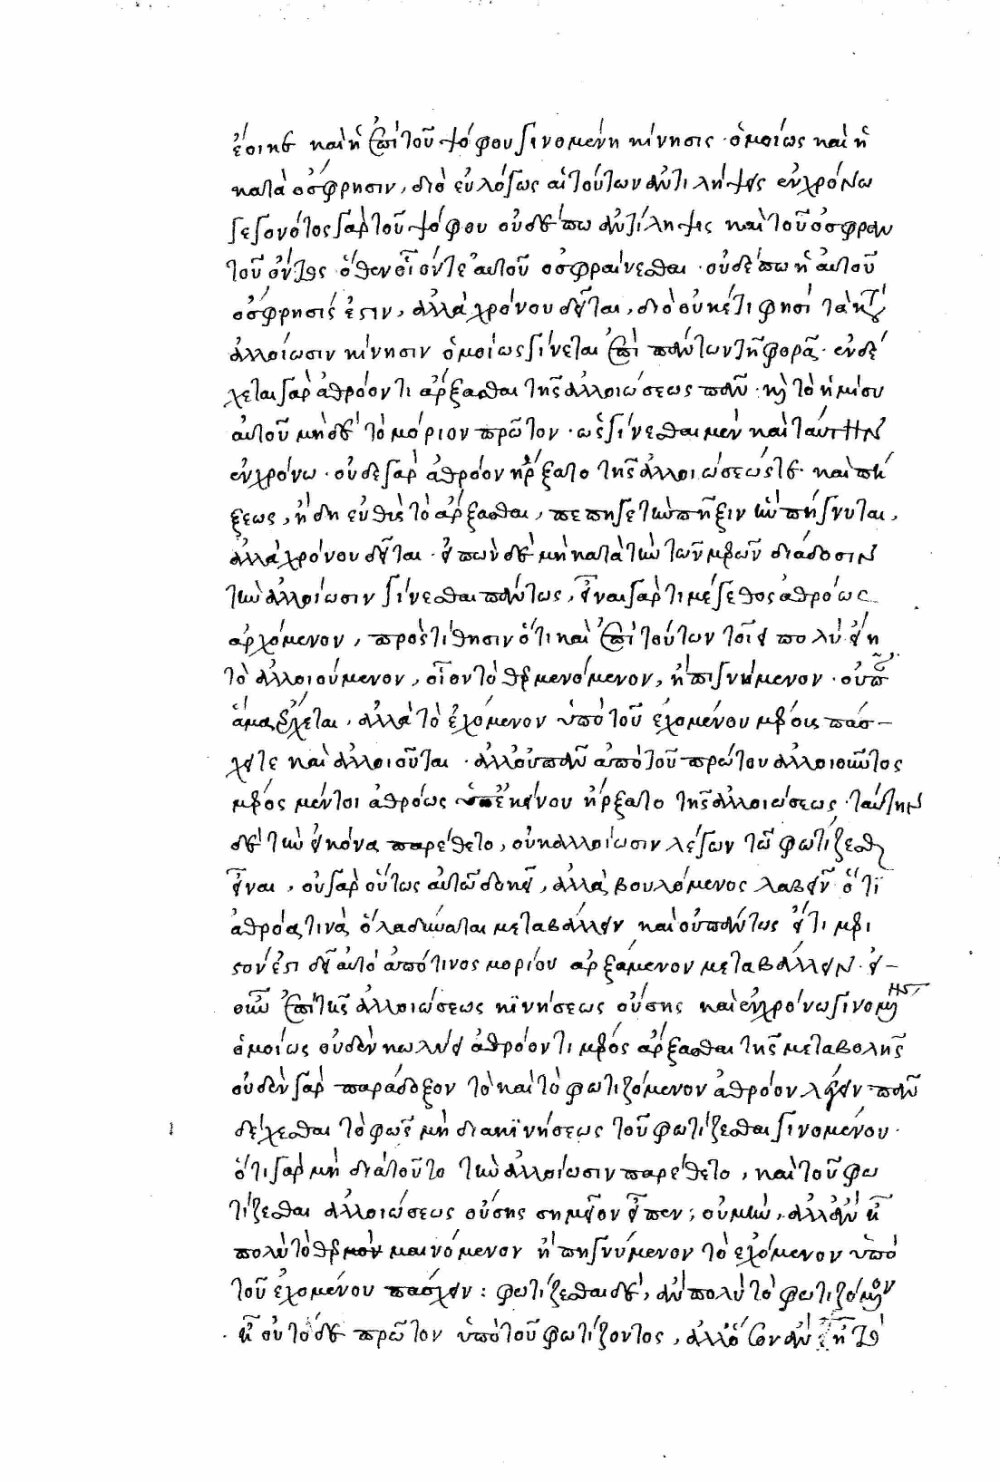 ἔοικε καὶ ἡ ἐπὶ τοῦ ψόφου γινομένη κίνησις · ὁμοίως καὶ ἡ
κατὰ ὄσφρησιν, διὸ εὐλόγως αἱ τούτων ἀντιλήψεις ἐν χρόνω
γεγονότος γὰρ τοῦ ψόφου οὐδέπω ἀντίληψις καὶ τοῦ ὀσφραν
τοῦ ὄντος ὅθεν οἷόντε αὐτοῦ ὀσφραίνεσθαι · οὐδέπω ἡ αὐτοῦ
ὄσφρησίς ἐστιν, ἀλλὰ χρόνου δεῖται, διὸ οὐκέτι φησὶ τὰ κτ
ἀλλοίωσιν κίνησιν ὁμοίως γίνεται ἐπὶ πάντων τῇ φορᾷ · ἐνδέ
χεται γὰρ ἀθρόον τι ἄρξασθαι τῆς ἀλλοιώσεως πᾶν · κ μὴ τὸ ἥμισυ
αὐτοῦ μηδὲ τὸ μόριον πρῶτον · ὡς γίνεσθαι μὲν καὶ ταύτην
ἐν χρόνω · οὐδὲ γὰρ ἀθρόον ἤρξατο τῆς ἀλλοιώσεώς τε καὶ πή
ξεως, ἤδη εὐθὺς τὸ ἄρξασθαι, πέπηγε τὴν πῆξιν ἣν πήγνυται,
ἀλλὰ χρόνου δεῖται · εἰπὼν δὲ μὴ κατὰ τὴν τῶν μερῶν διάδοσιν
τὴν ἀλλοίωσιν γίνεσθαι πάντως, εἶναι γάρ τι μέγεθος ἀθρόως
ἀρχόμενον, προστίθησιν ὅτι καὶ ἐπὶ τούτων τοι εἰ πολὺ εἴη
τὸ ἀλλοιούμενον, οἷον τὸ θερμαινόμενον, ἢ πηγνύμενον · οὐ πᾶν
ἅμα ἄρχεται, ἀλλὰ τὸ ἐχόμενον ὑπὸ τοῦ ἐχομένου μέρους πάσ–
χει τε καὶ ἀλλοιοῦται · ἀλλ' οὐ πᾶν ἀπὸ τοῦ πρώτου ἀλλοιοῦντος
μέρος μέντοι ἀθρόως ὑπ' ἐκείνου ἤρξατο τῆς ἀλλοιώσεως · ταύτην
δὲ τὴν εἰκόνα παρέθετο, οὐκ ἀλλοίωσιν λέγων τῶ φωτίζεσθαι
εἶναι, οὐ γὰρ οὕτως αὐτῶ δοκεῖ, ἀλλὰ βουλόμενος λαβεῖν ὅτι
ἀθρόα τινὰ ὅλα δύναται μεταβάλλειν καὶ οὐ πάντως εἴ τι μεί
ζον ἐστὶ δεῖ αὐτὸ ἀπό τινος μορίου ἀρξάμενον μεταβάλλειν · εἰ–
οὖν ἐπὶ τῆς ἀλλοιώσεως κινήσεως οὔσης καὶ ἐν χρόνω γινομένης
ὁμοίως οὐδὲν κωλύει ἀθρόον τι μέρος ἄρξασθαι τῆς μεταβολῆς
οὐδὲν γὰρ παράδοξον τὸ καὶ τὸ φωτιζόμενον ἀθρόον λέγειν πᾶν
δέχεσθαι τὸ φῶς μὴ διὰ κινήσεως τοῦ φωτίζεσθαι γινομένου ·
ὅτι γὰρ μὴ διὰ τοῦτο τὴν ἀλλοίωσιν παρέθετο, καὶ τοῦ φω
τίζεσθαι ἀλλοιώσεως οὔσης σημεῖον εἶπεν ; οὐ μὴν, ἀλλ' ἂν ᾖ
πολὺ τὸ θερμαινόμενον ἢ πηγνύμενον τὸ ἐχόμενον ὑπὸ
τοῦ ἐχομένου πάσχειν : φωτίζεσθαι δὲ, ἂν πολὺ τὸ φωτιζόμενον
ᾖ οὐ τόδε πρῶτον ὑπὸ τοῦ φωτίζοντος,